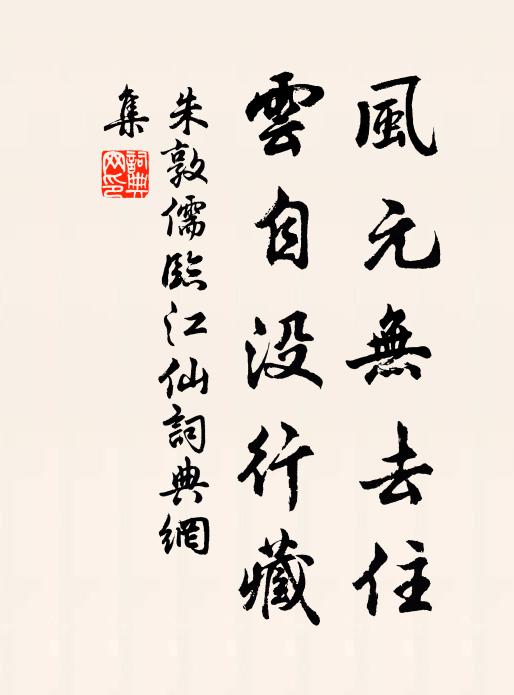 風元無去住
雲自没行藏
朱敦儒臨江仙詞典網
集
詞典網印